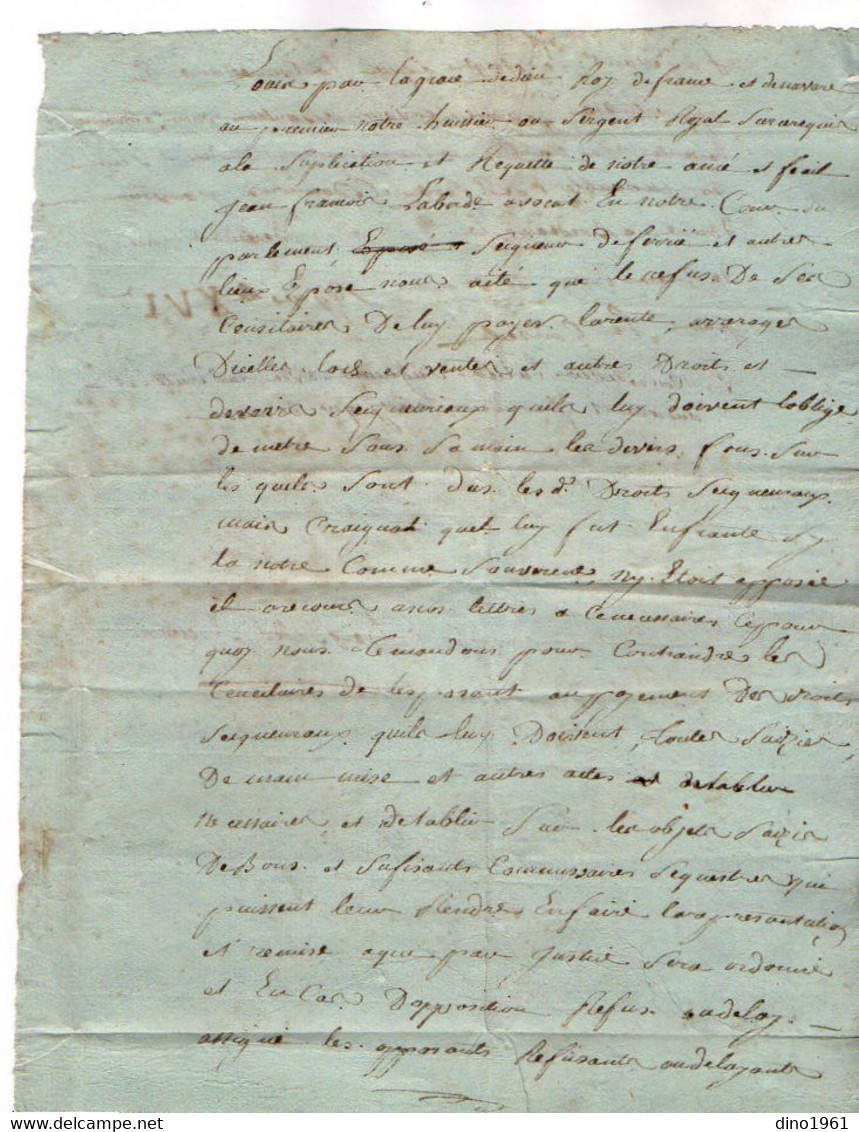 Louis par la grace de dieu Roy de france et de navare
au premier notre huissier ou Sergent Royal Sur ce requis
a la Suplication et Requette de notre amé et feail
jean francois Laborde avocat En notre Cour du
parlement Seigneur de ferrié et autres
lieux Expose nous a été que le refus De Ses
Censitaires De luy payer la rente, arrerages
Dicelle lods et ventes et autres Droits et
devoirs Seigneuriaux quils luy doivent loblige
de metre Sous Sa main les divers fons Sur
les quels Sont Dus les d. Droits Seigneuriaux
mais Craignat quel luy fut Enfrainte Sy
la notre Comme Souveraine, ny Etoit apposée
il a recours a nos lettres a Ce necessaires Cepour
quoy nous te mandons pour Contraindre les
Cencitaires de lexposant au payement Des droits
Seigneuraux quils luy Doivent, toutes Saizies
De main mise et autres actes
necessaires, et detablir Sur les objets Saizis
De Bons et Sufisants Commissaires Sequestres qui
puissent leur Rendre En faire la representation
et remise a qui par Justice Sera ordonné
et En Cas D'opposition Refus ou delay
assigne les opposants Refusants ou delayants
dino1961